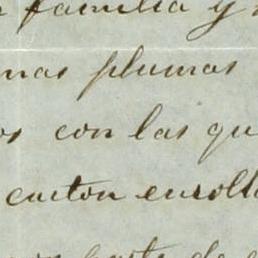 familia y
mas plumas
os con las qu
carton enroll